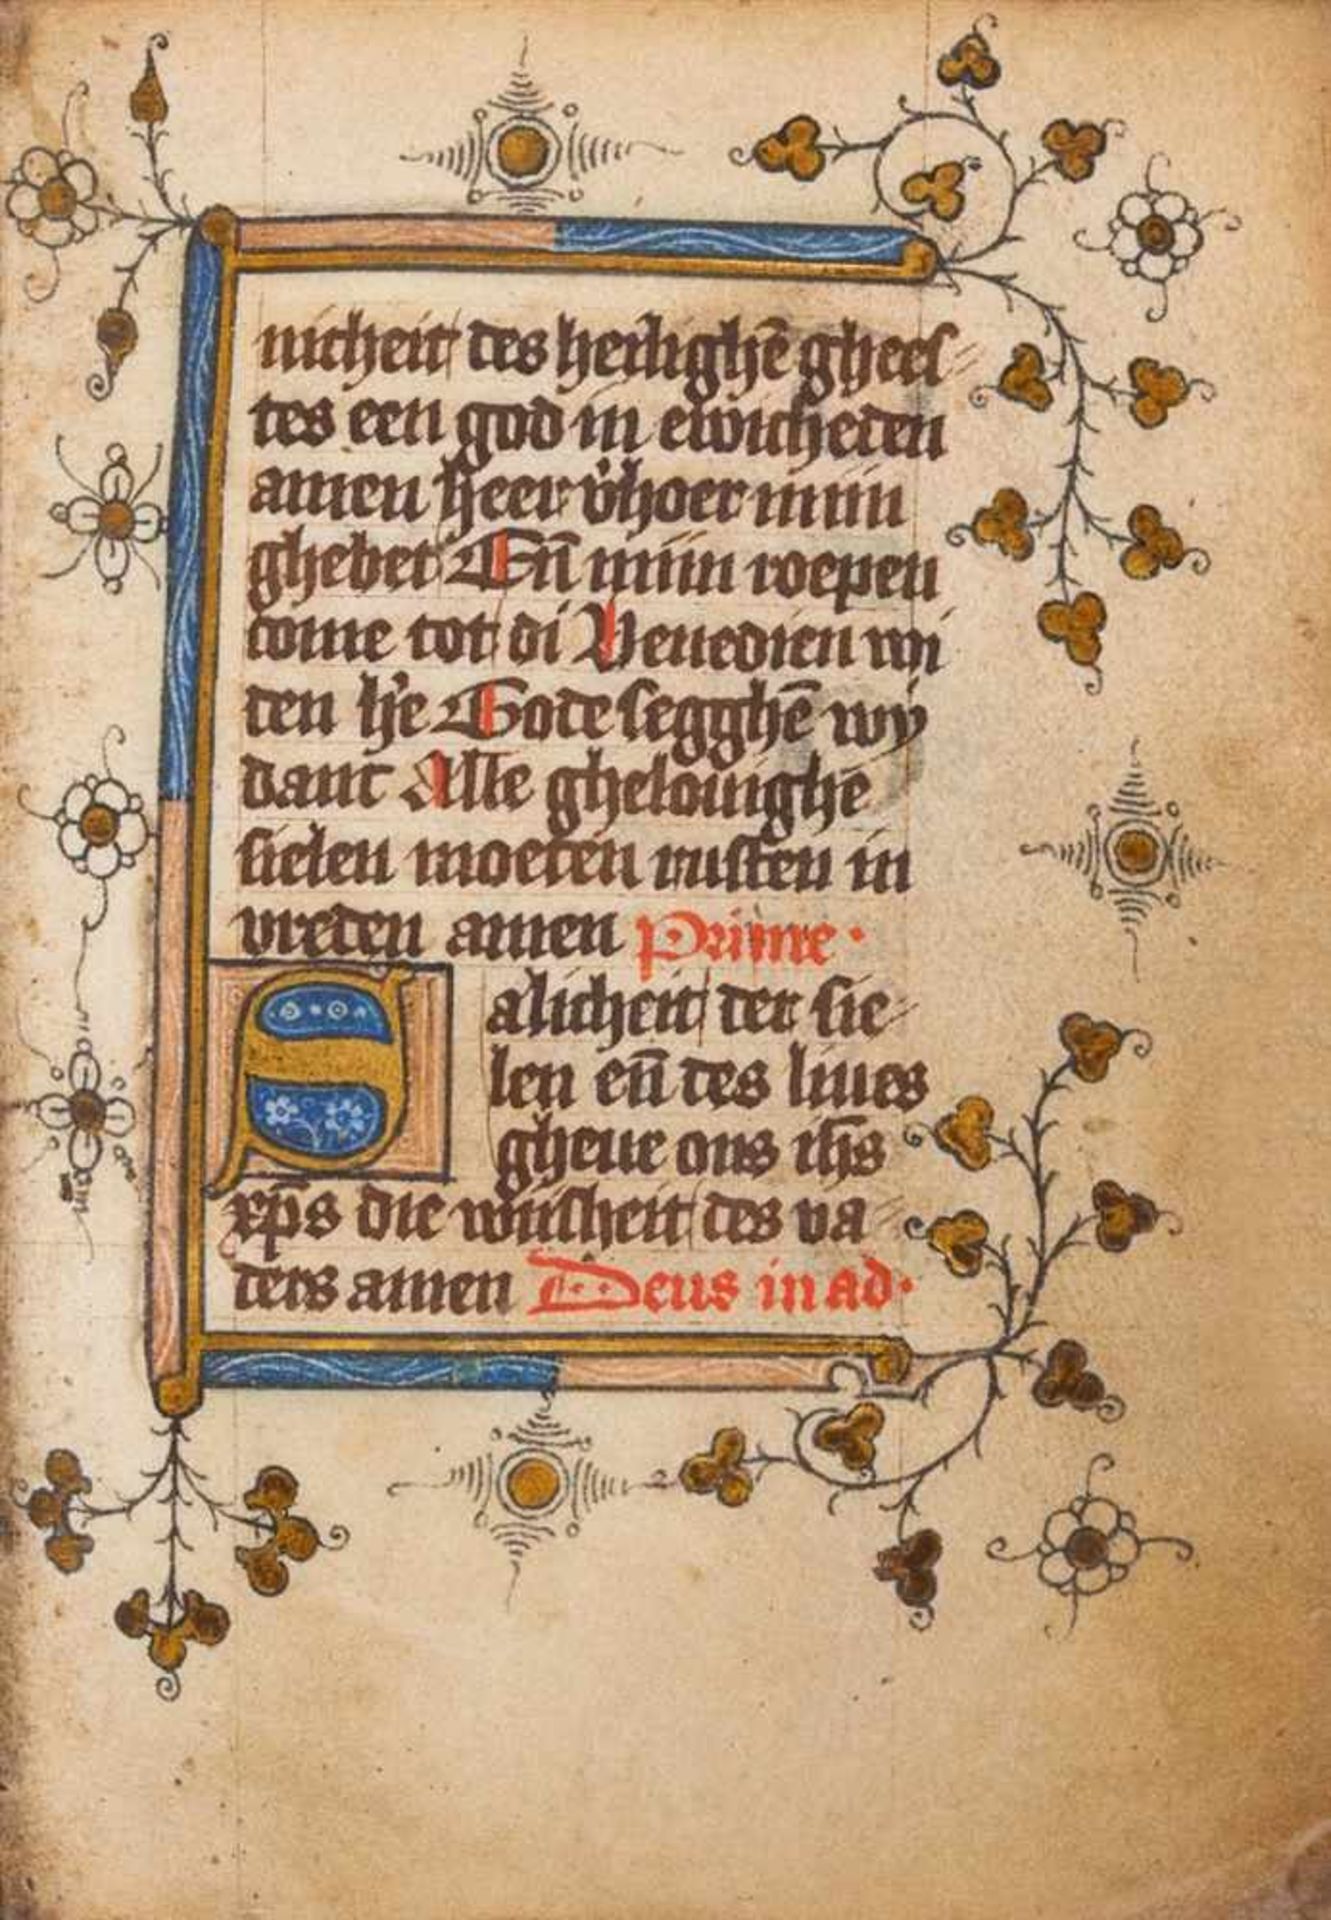 nicheit des heilighē ghees
tes een god in ewicheden
amen heer v̾hoer miin
ghebet Eñ miin roepen
come tot di Benedien wi
den h̾e Gode segghē wy
danc Alle ghelouighe
sielen moeten rusten in
vreden amen Prime·
Salicheit der sie
len eñ des liues
gheue ons ihs̄
xp̄s die wiisheit des va
ders amen Deus in ad·